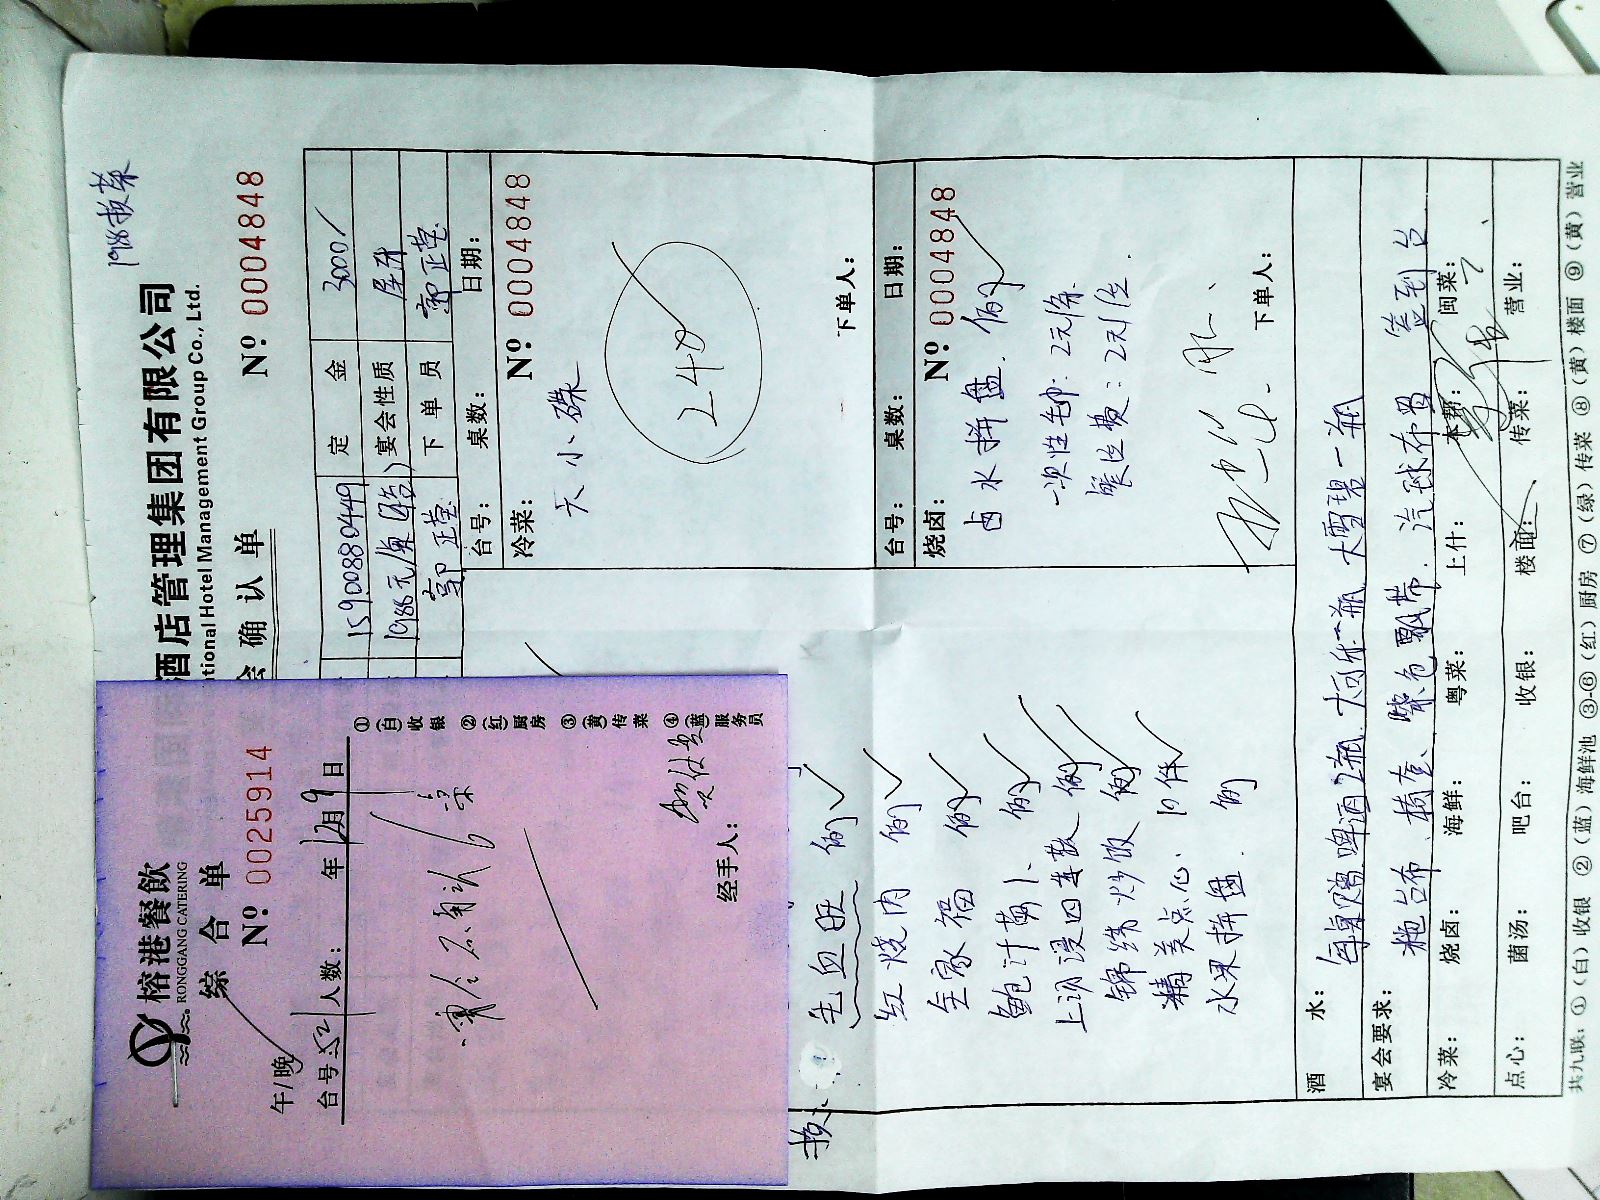 1988换菜
酒店管理集团有限公司
tional Hotel Management Group Co., Ltd.
会确认单
Nº 0004848
15900880449 定金 3000/
1988元/桌 宴会性质
郭正莹 下单员 郭正莹
台号: 桌数: 日期:
冷菜: Nº 0004848
天小碟
240
下单人:
台号: 桌数: 日期:
烧卤: Nº 0004848
卤水拼盘 例
一次性毛巾: 2元/条
餐位费: 2元/位
下单人:
榕港餐飲
RONGGANG CATERING
综合单
Nº 0025914
午/晚
台号: 52 人数: 年 12月9日
经手人:
①(白)收银
②(红)厨房
③(黄)传菜
④(蓝)服务员
换
毛血旺 例
红烧肉 例
全家福 例
鲍汁 例
上汤浸四季蔬 例
锦绣炒饭 例
精美点心 10件
水果拼盘 例
酒水: 每桌赠啤酒2瓶 大可乐一瓶 大雪碧一瓶
宴会要求: 拖台布、椅套、紫色飘带、汽球布置 签到台
冷菜: 烧卤: 海鲜: 粤菜: 上什: 本帮: 闽菜:
点心: 菌汤: 吧台: 收银: 楼面: 传菜: 营业:
共九联: ①(白)收银 ②(蓝)海鲜池 ③-⑥(红)厨房 ⑦(绿)传菜 ⑧(黄)楼面 ⑨(黄)营业